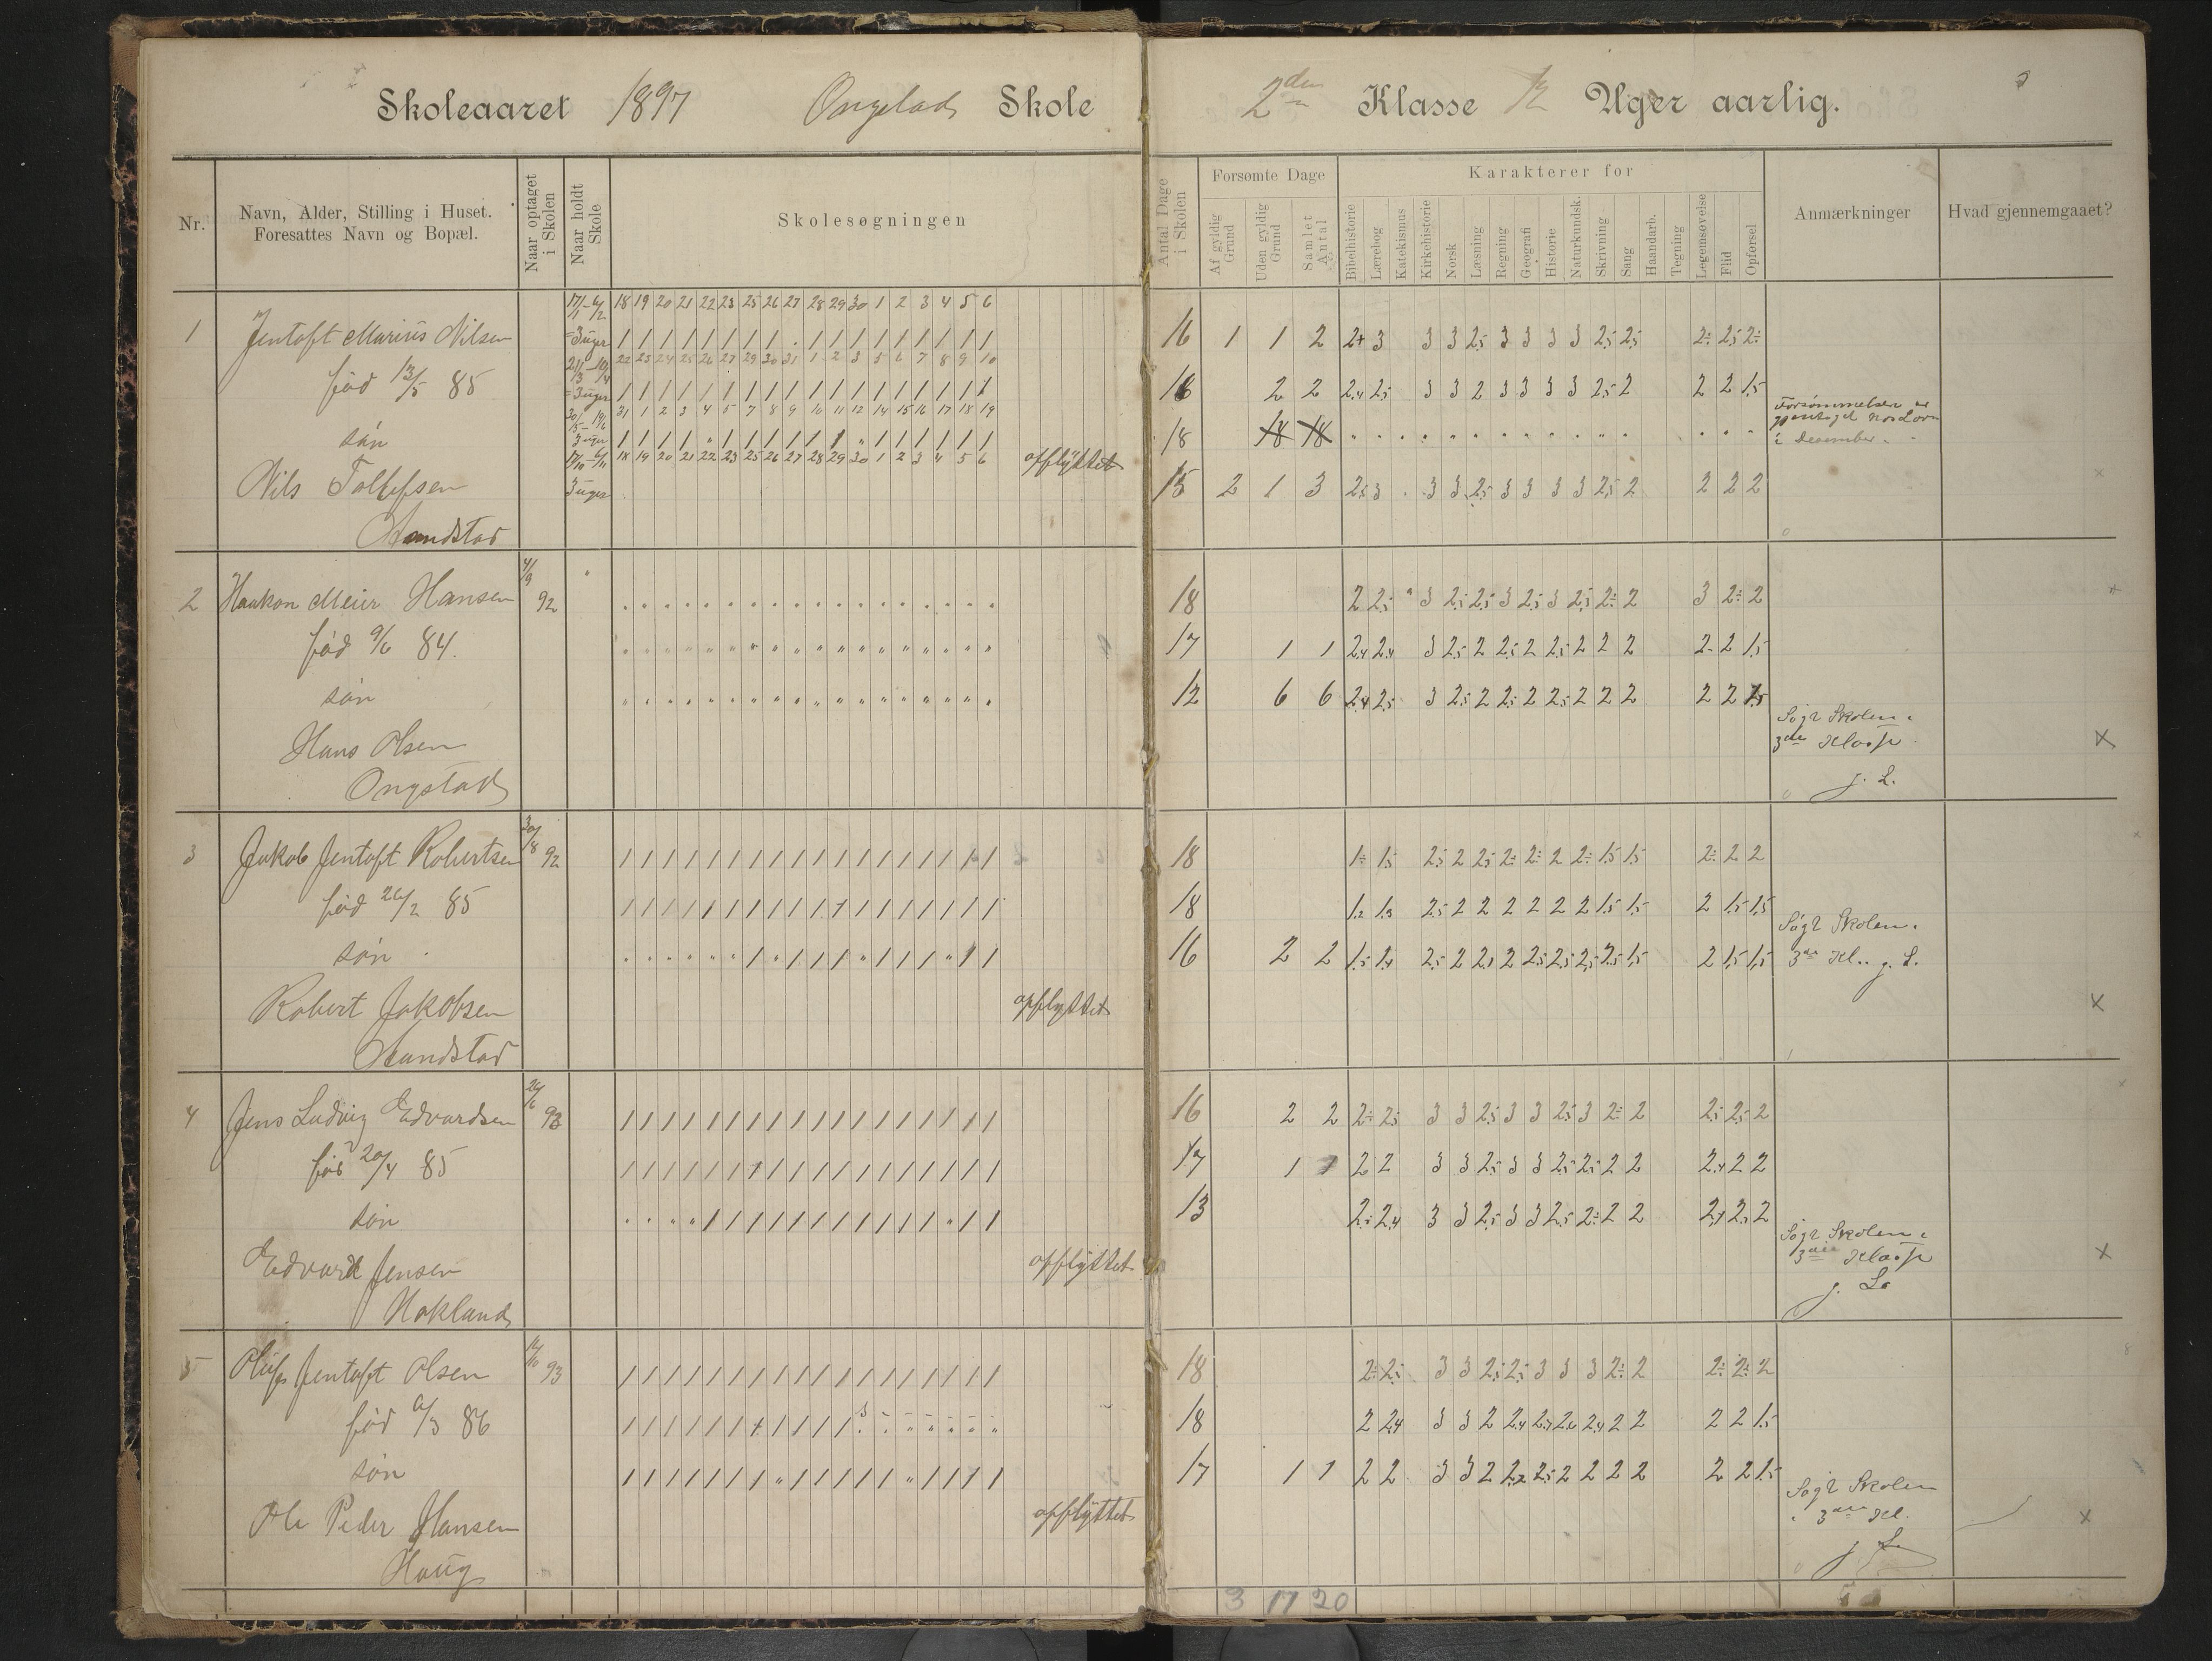 Skoleaaret 1897 Ongstad Skole
2den Klasse 12 Uger aarlig.
Nr.
Navn, Alder, Stilling i Huset.
Foresattes Navn og Bopæl.
Naar optaget i Skolen
Naar holdt Skole
Skolesøgningen
Antal Dage i Skolen
Forsømte Dage
Af gyldig Grund
Uden gyldig Grund
Samlet Antal
Karakterer for
Bibelhistorie
Lærebog
Katekismus
Kirkehistorie
Norsk
Læsning
Regning
Geografi
Historie
Naturkundsk.
Skrivning
Sang
Haandarb.
Tegning
Legemsøvelse
Flid
Opførsel
Anmærkninger
Hvad gjennemgaaet?
17/1-6/2 18 19 20 21 22 23 25 26 27 28 29 30 1 2 3 4 5 6
1 Jentoft Marius Nilsen = 3 uger 16 1 1 2 2+ 3 3 3 2,5 3 3 3 3 2,5 2,5 2÷ 2,5 2÷
22 23 24 25 26 27 29 30 31 1 2 3 5 6 7 8 9 10
fød 13/5 85 = 3 uger 16 2 2 2,4 2,5 3 3 2 3 3 3 3 2,5 2 2 2 1,5
31 1 2 3 4 5 7 8 9 10 11 12 14 15 16 17 18 19
søn 3 uger 18 18 18
i December
17/10-6/11 18 19 20 21 22 23 25 26 27 28 29 30 1 2 3 4 5 6 opflyttet
Nils Tollefsen 3 uger 15 2 1 3 2,5 3 3 3 2,5 3 3 3 3 2,5 2 2 2 2
Sandstad
2 Haakon Meier Hansen 4/9 92 18 2 2,5 3 2,5 2,5 3 2,5 3 2,5 2÷ 2 3 2÷ 2
fød 9/6 84. 17 1 1 2,4 2,4 3 2,5 2 2,5 2 2,5 2 2 2 2 2 1,5
søn 12 6 6 2,4 2,5 3 2,5 2 2,5 2 2,5 2 2 2 2 2 1,5
Søgt Skolen i
Hans Olsen 3die Klasse
Ongstad J. L.
3 Jakob Jentoft Robertsen 30/8 92 18 1÷ 1,5 2,5 2 2,5 2÷ 2÷ 2 2÷ 1,5 1,5 2÷ 2 2
fød 26/2 85 18 1,2 1,3 2,5 2 2 2 2 2 2 1,5 1,5 2 1,5 1,5
Søgt Skolen i
søn 16 2 2 1,5 1,4 2,5 2 2,1 2 2,5 2,5 2,5 2,5 1,5 2 1,5 1,5 3die Kl. J. L.
Robert Jakobsen opflyttet
Sandstad
4 Jens Ludvig Edvardsen 26/6 93 16 2 2 2÷ 2,5 3 3 2,5 3 3 2,5 3 2÷ 2 2,5 2,5 2
fød 20/4 85 17 1 1 2 2 3 3 2,5 3 3 2,5 2,5 2 2 2,4 2 2
søn 13 2,5 2,4 3 3 2,5 3 3 2,5 2÷ 2 2 2,4 2,5 2
Søgt Skolen i
Edvard Jensen opflyttet 3die Klasse
Hokland J. L.
5 Oluf Jentoft Olsen 12/10 93 18 2÷ 2,5 3 3 2,5 2,5 3 3 3 2÷ 2 2÷ 2÷ 2
fød 9/3 86 18 2 2,4 3 3 2 2,4 2,4 2,6 2,4 2 2 2 2 1,5
søn 17 1 1 2 2 3 3 2 2,2 2,5 2 2 2 2 2 2 1,5
Søgt Skolen
Ole Peder Hansen opflyttet i 3die Kl.
Haug J. L.
3 17 20